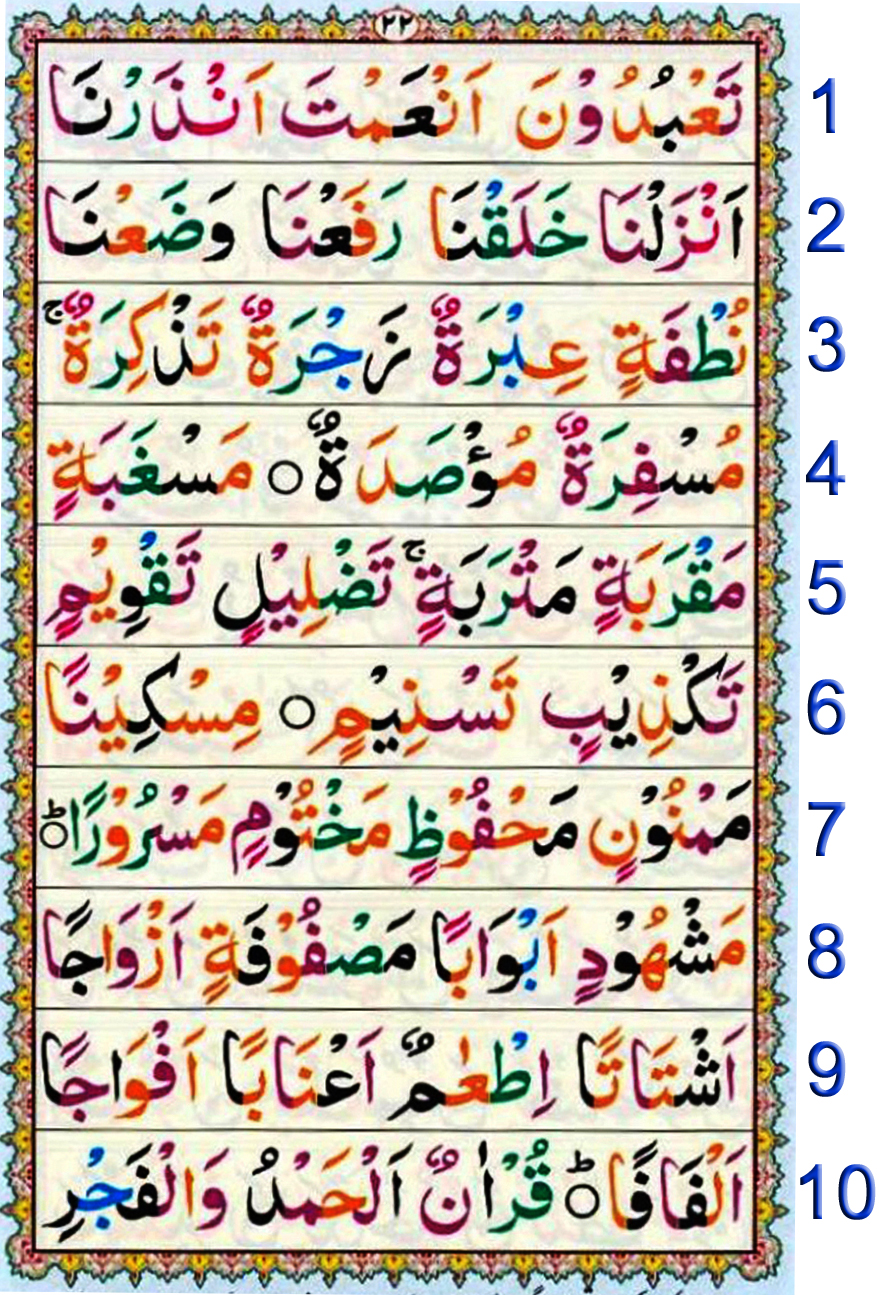 ٢٢
تَعْبُدُوْنَ اَنْعَمْتَ اَنْذَرْنَا 1
اَنْزَلْنَا خَلَقْنَا رَفَعْنَا وَضَعْنَا 2
نُطْفَةٍ عِبْرَةٌ زَجْرَةٌ تَذْكِرَةٌ ۚ 3
مُسْفِرَةٌ مُؤْصَدَةٌ ○ مَسْغَبَةٍ 4
مَقْرَبَةٍ مَتْرَبَةٍ ۚ تَضْلِيْلٍ تَقْوِيْمٍ 5
تَكْذِيْبٍ تَسْنِيْمٍ ○ مِسْكِيْنًا 6
مَمْنُوْنٍ مَحْفُوْظٍ مَخْتُوْمٍ مَسْرُوْرًا ؕ○ 7
مَشْهُوْدٍ اَبْوَابًا مَصْفُوْفَةٍ اَزْوَاجًا 8
اَشْتَاتًا اِطْعٰمٌ اَعْنَابًا اَفْوَاجًا 9
اَلْفَافًا ؕ○ قُرْاٰنٌ اَلْحَمْدُ وَالْفَجْرِ 10